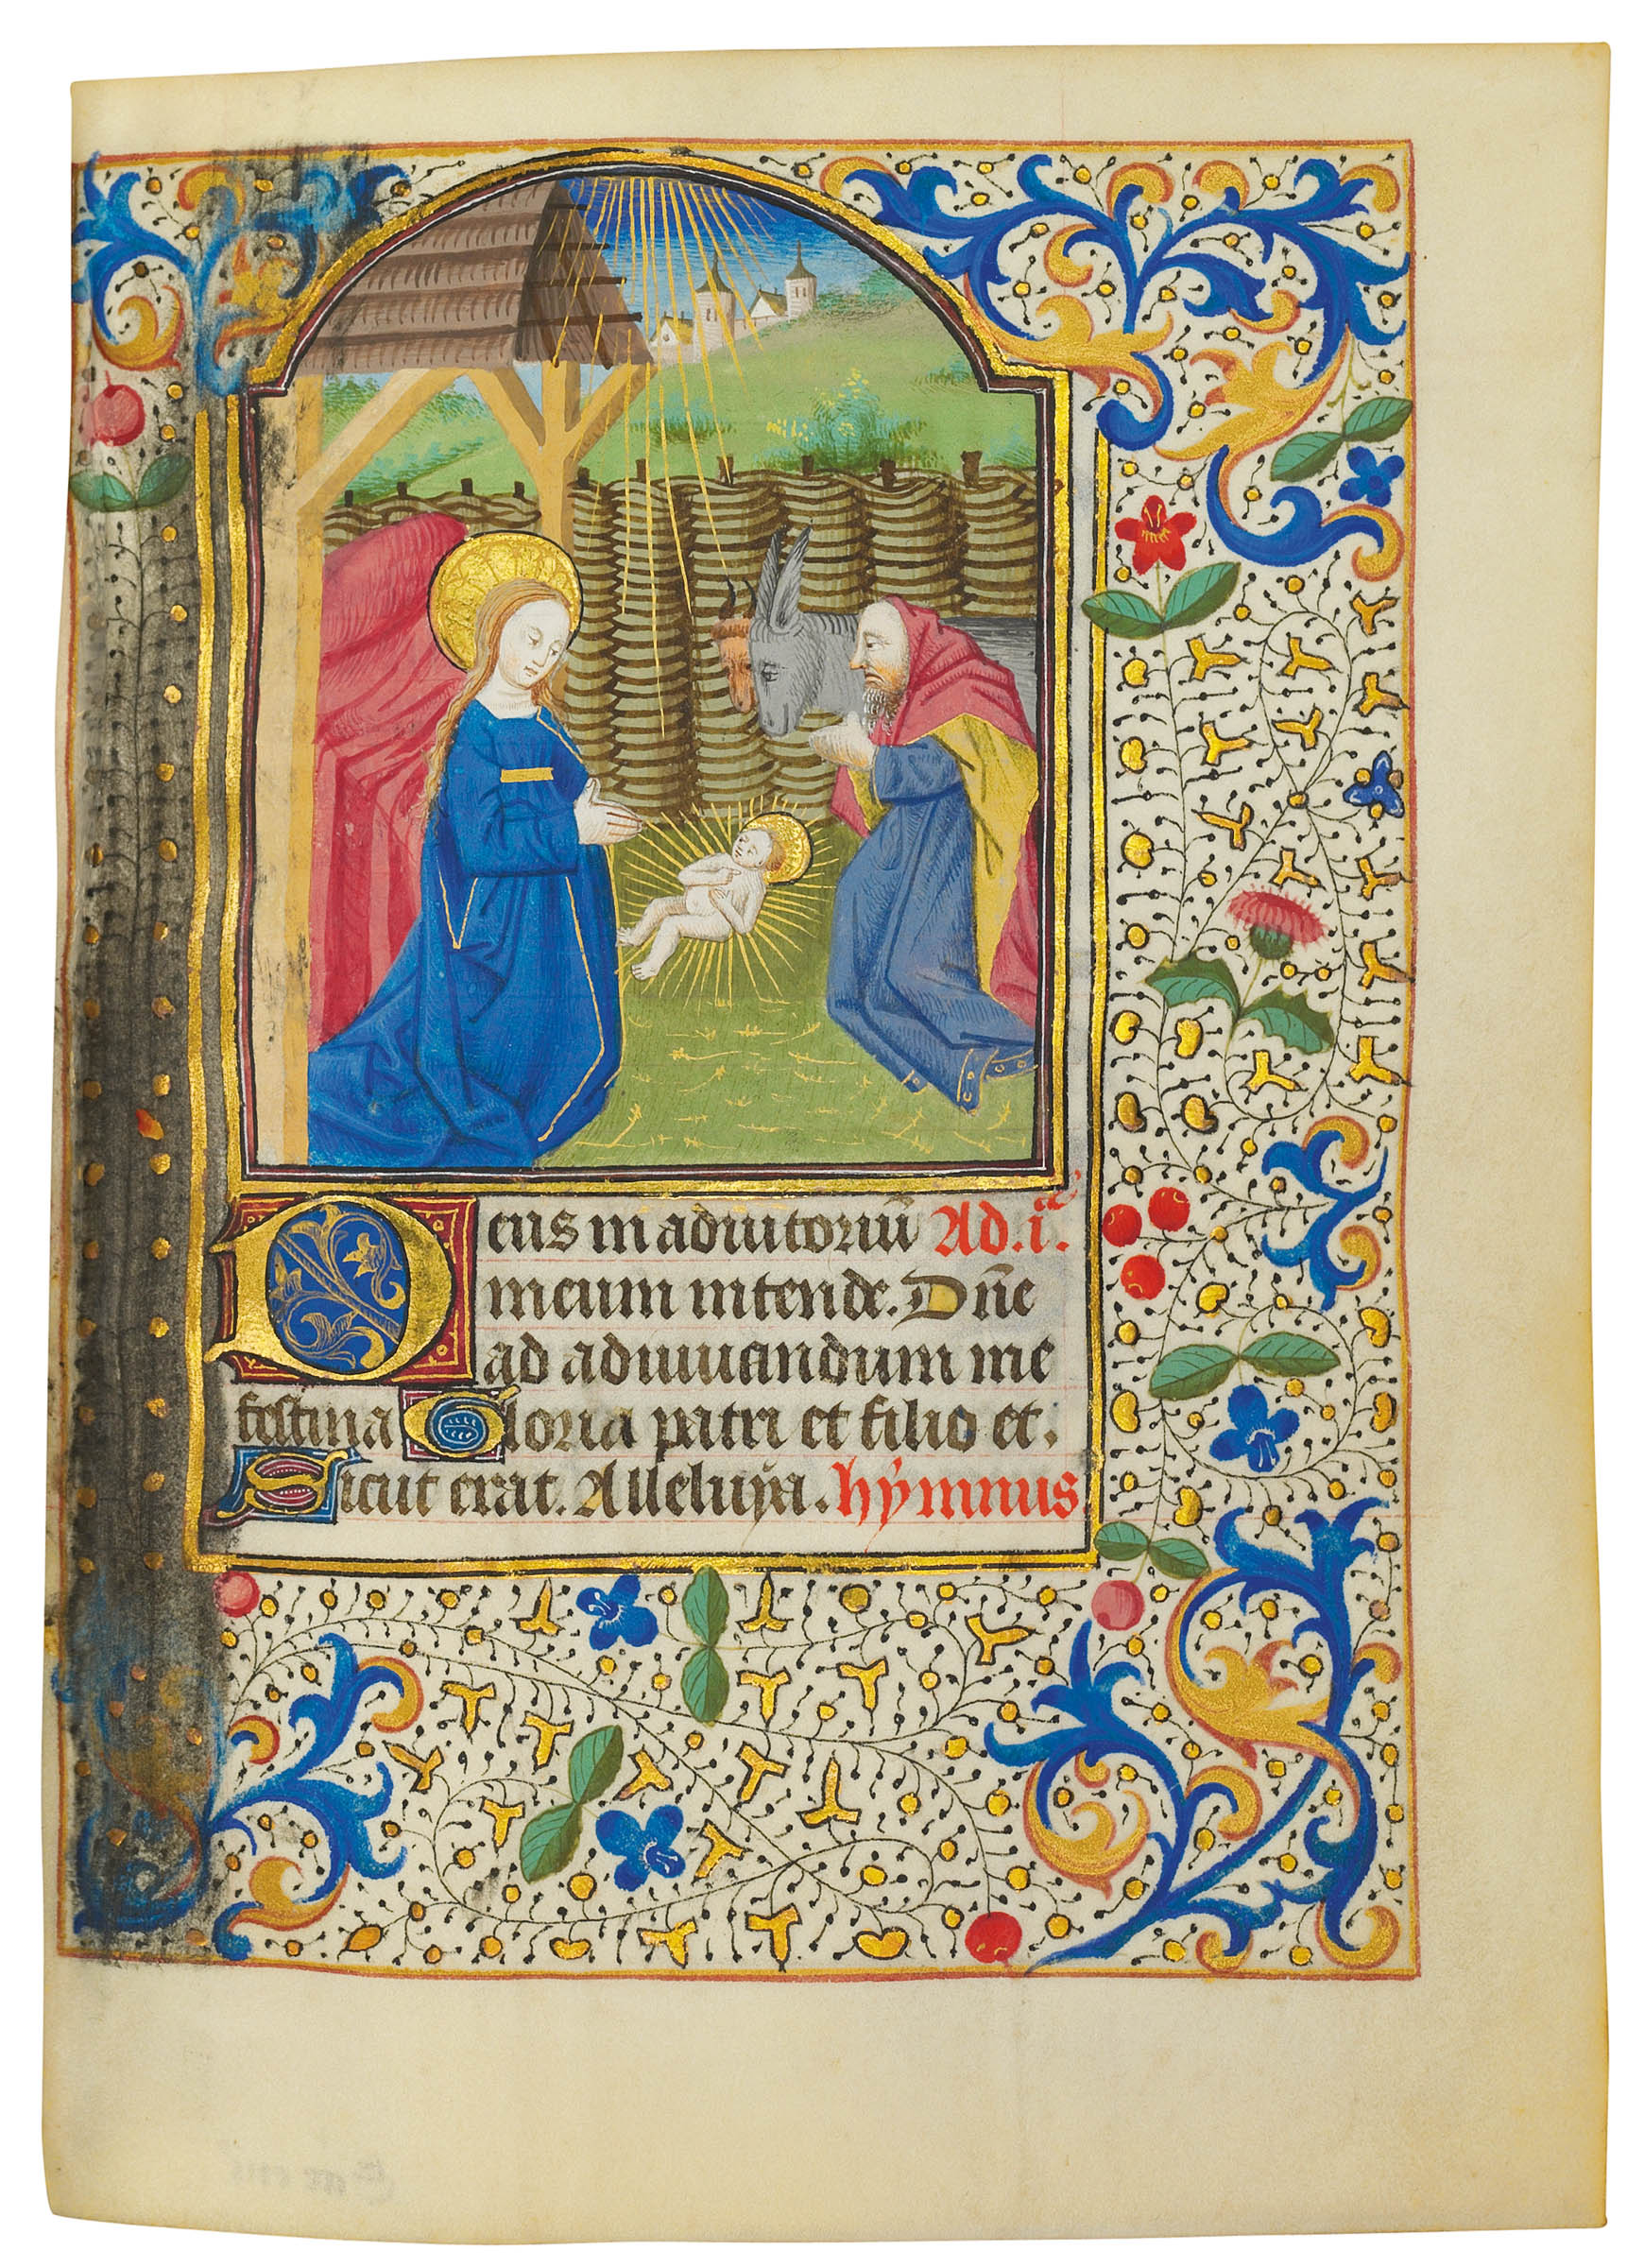 Deus in adiutoriū Ad .i.ᵃ
meum intende. Dn̄e
ad adiuuandum me
festina Gloria patri et filio et.
Sicut erat. Alleluÿa. hÿmnus